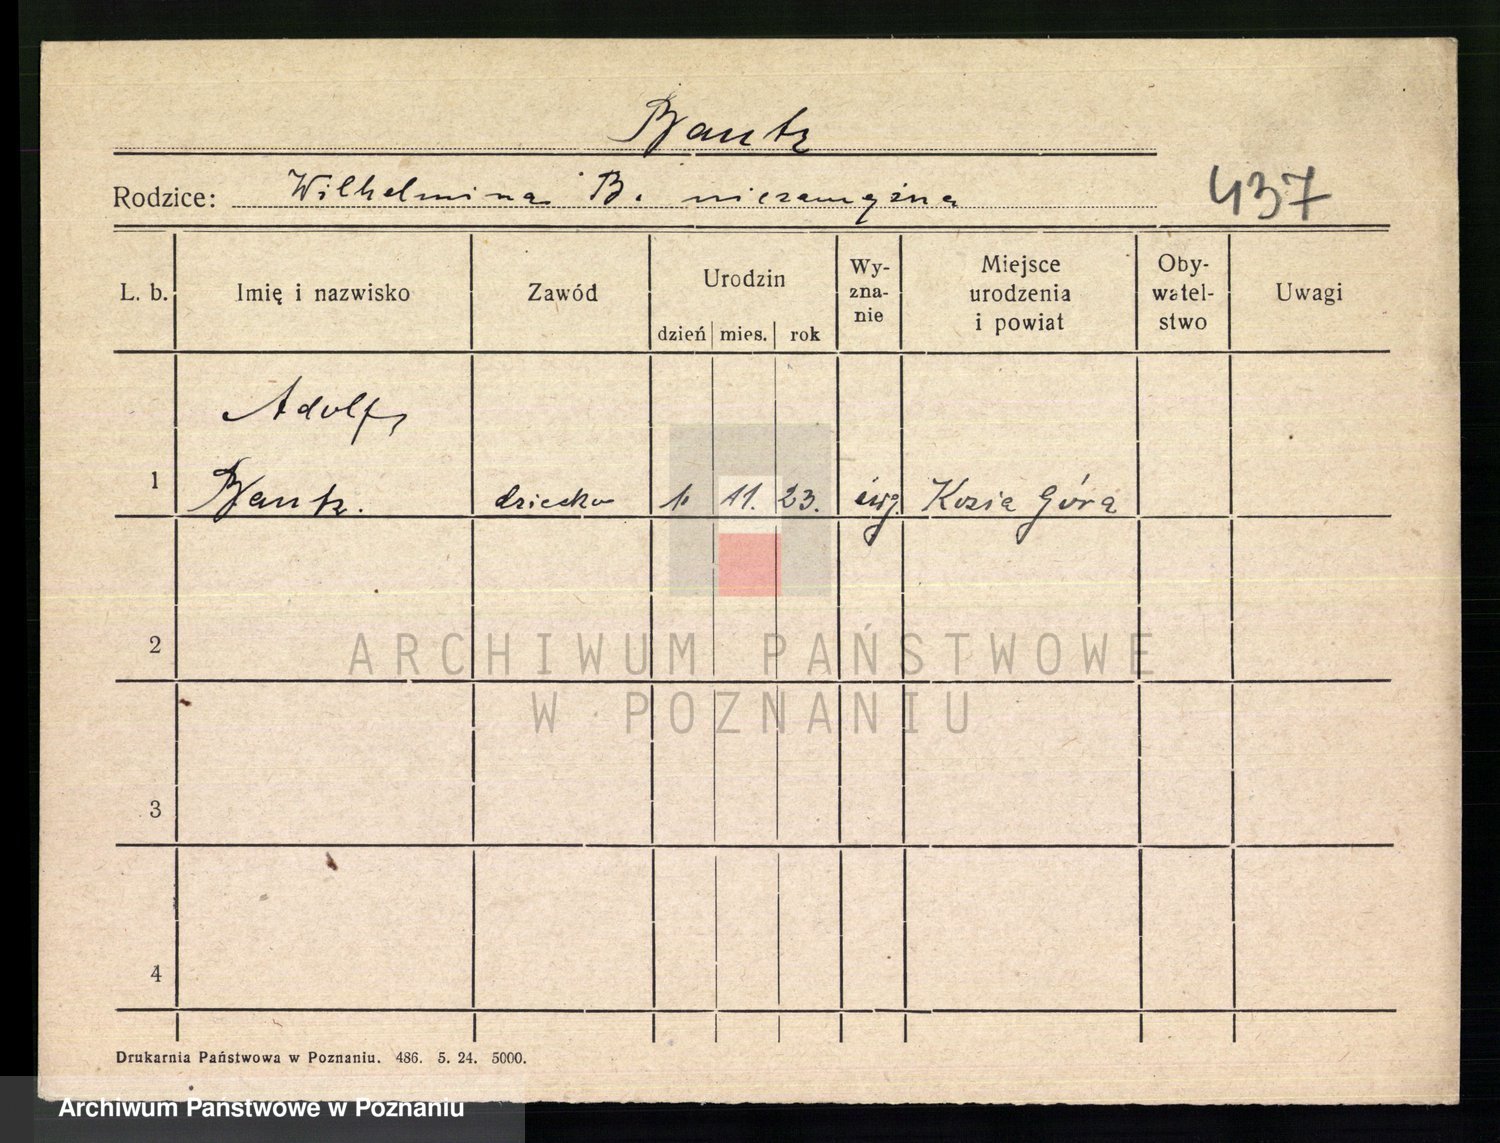 Bantz
Rodzice: Wilhelmina B. niezamężna
437
L. b.
Imię i nazwisko
Zawód
Urodzin
dzień mies. rok
Wy-
zna-
nie
Miejsce
urodzenia
i powiat
Oby-
watel-
stwo
Uwagi
Adolf
1 Bantz. dziecko 11. 23. ewg. Kozia Góra
2
3
4
ARCHIWUM PAŃSTWOWE
W POZNANIU
Drukarnia Państwowa w Poznaniu. 486. 5. 24. 5000.
Archiwum Państwowe w Poznaniu